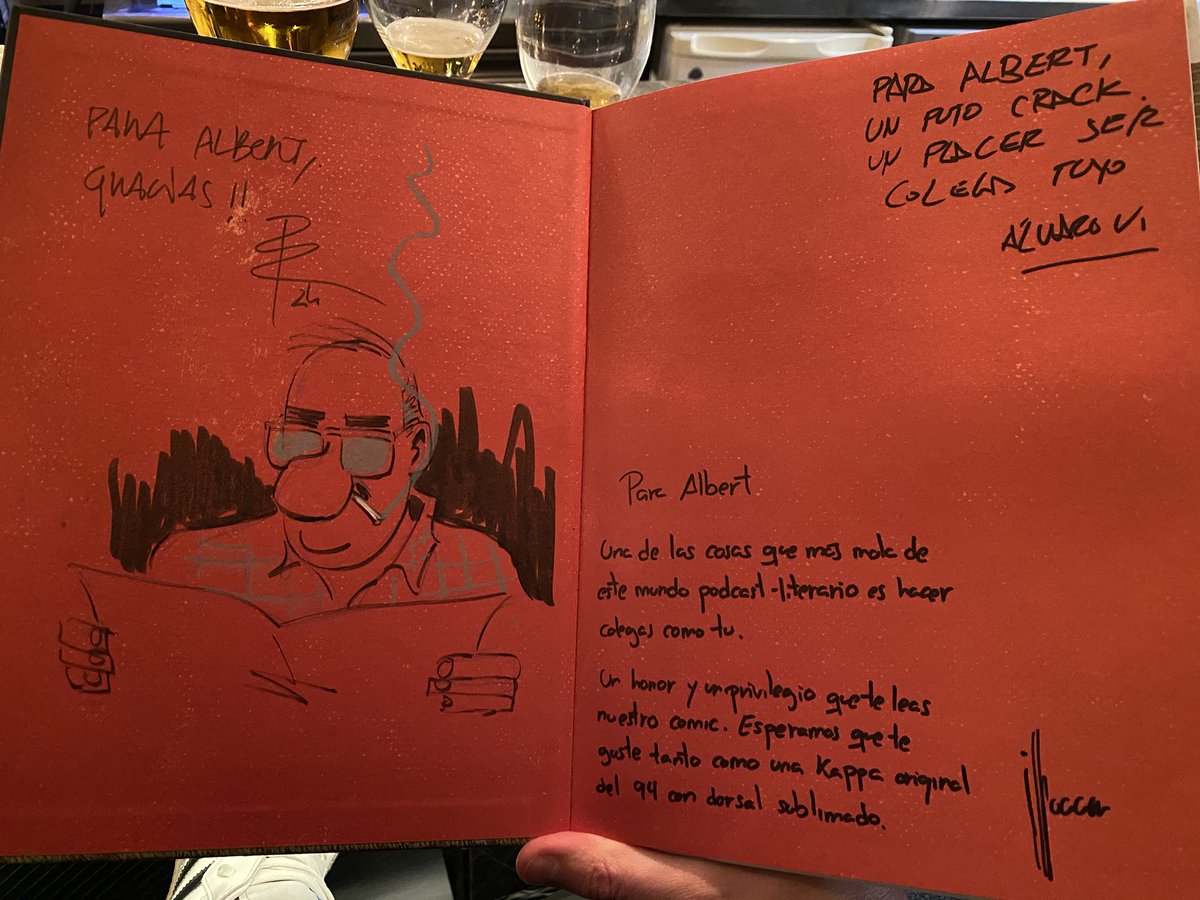 PARA ALBERT,
GRACIAS!!
24
PARA ALBERT,
UN PUTO CRACK.
UN PLACER SER
COLEGA TUYO
ÁLVARO V.
Para Albert
Una de las cosas que mas mola de
este mundo podcast-literario es hacer
colegas como tu.
Un honor y un privilegio que te leas
nuestro comic. Esperamos que te
guste tanto como una Kappa original
del 94 con dorsal sublimado.